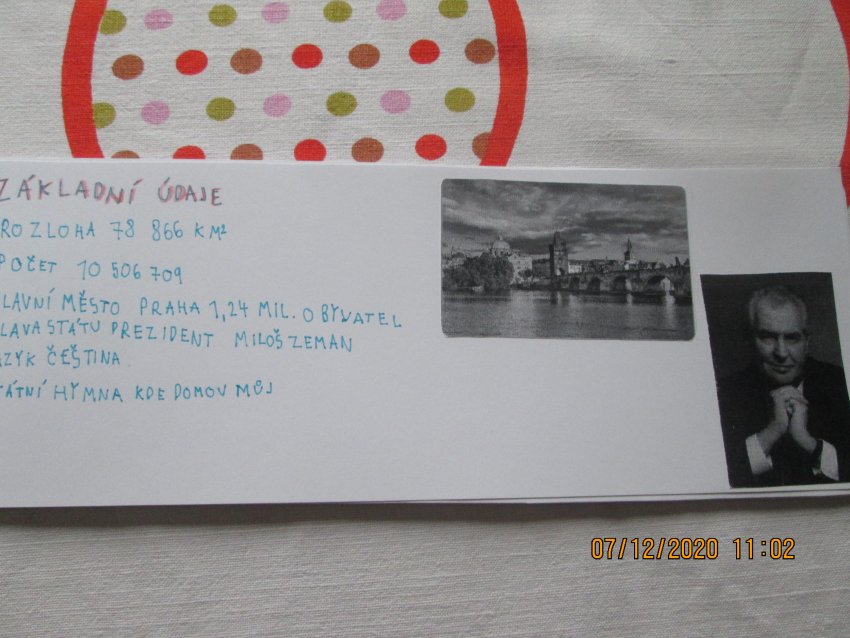 ZÁKLADNÍ ÚDAJE
ROZLOHA 78 866 KM²
POČET 10 506 709
LAVNÍ MĚSTO PRAHA 1,24 MIL. OBYVATEL
LAVA STÁTU PREZIDENT MILOŠ ZEMAN
AZYK ČEŠTINA
TÁTNÍ HYMNA KDE DOMOV MŮJ
07/12/2020 11:02